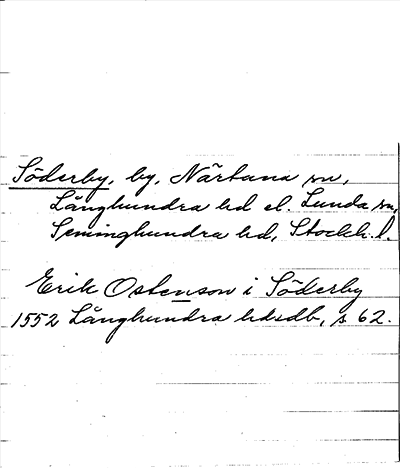 Söderby, by, Närtuna sn,
Långhundra hd el. Lunda sn,
Seminghundra hd, Stockh. l.
Erik Ostenson i Söderby
1552 Långhundra hdsdb, s 62.